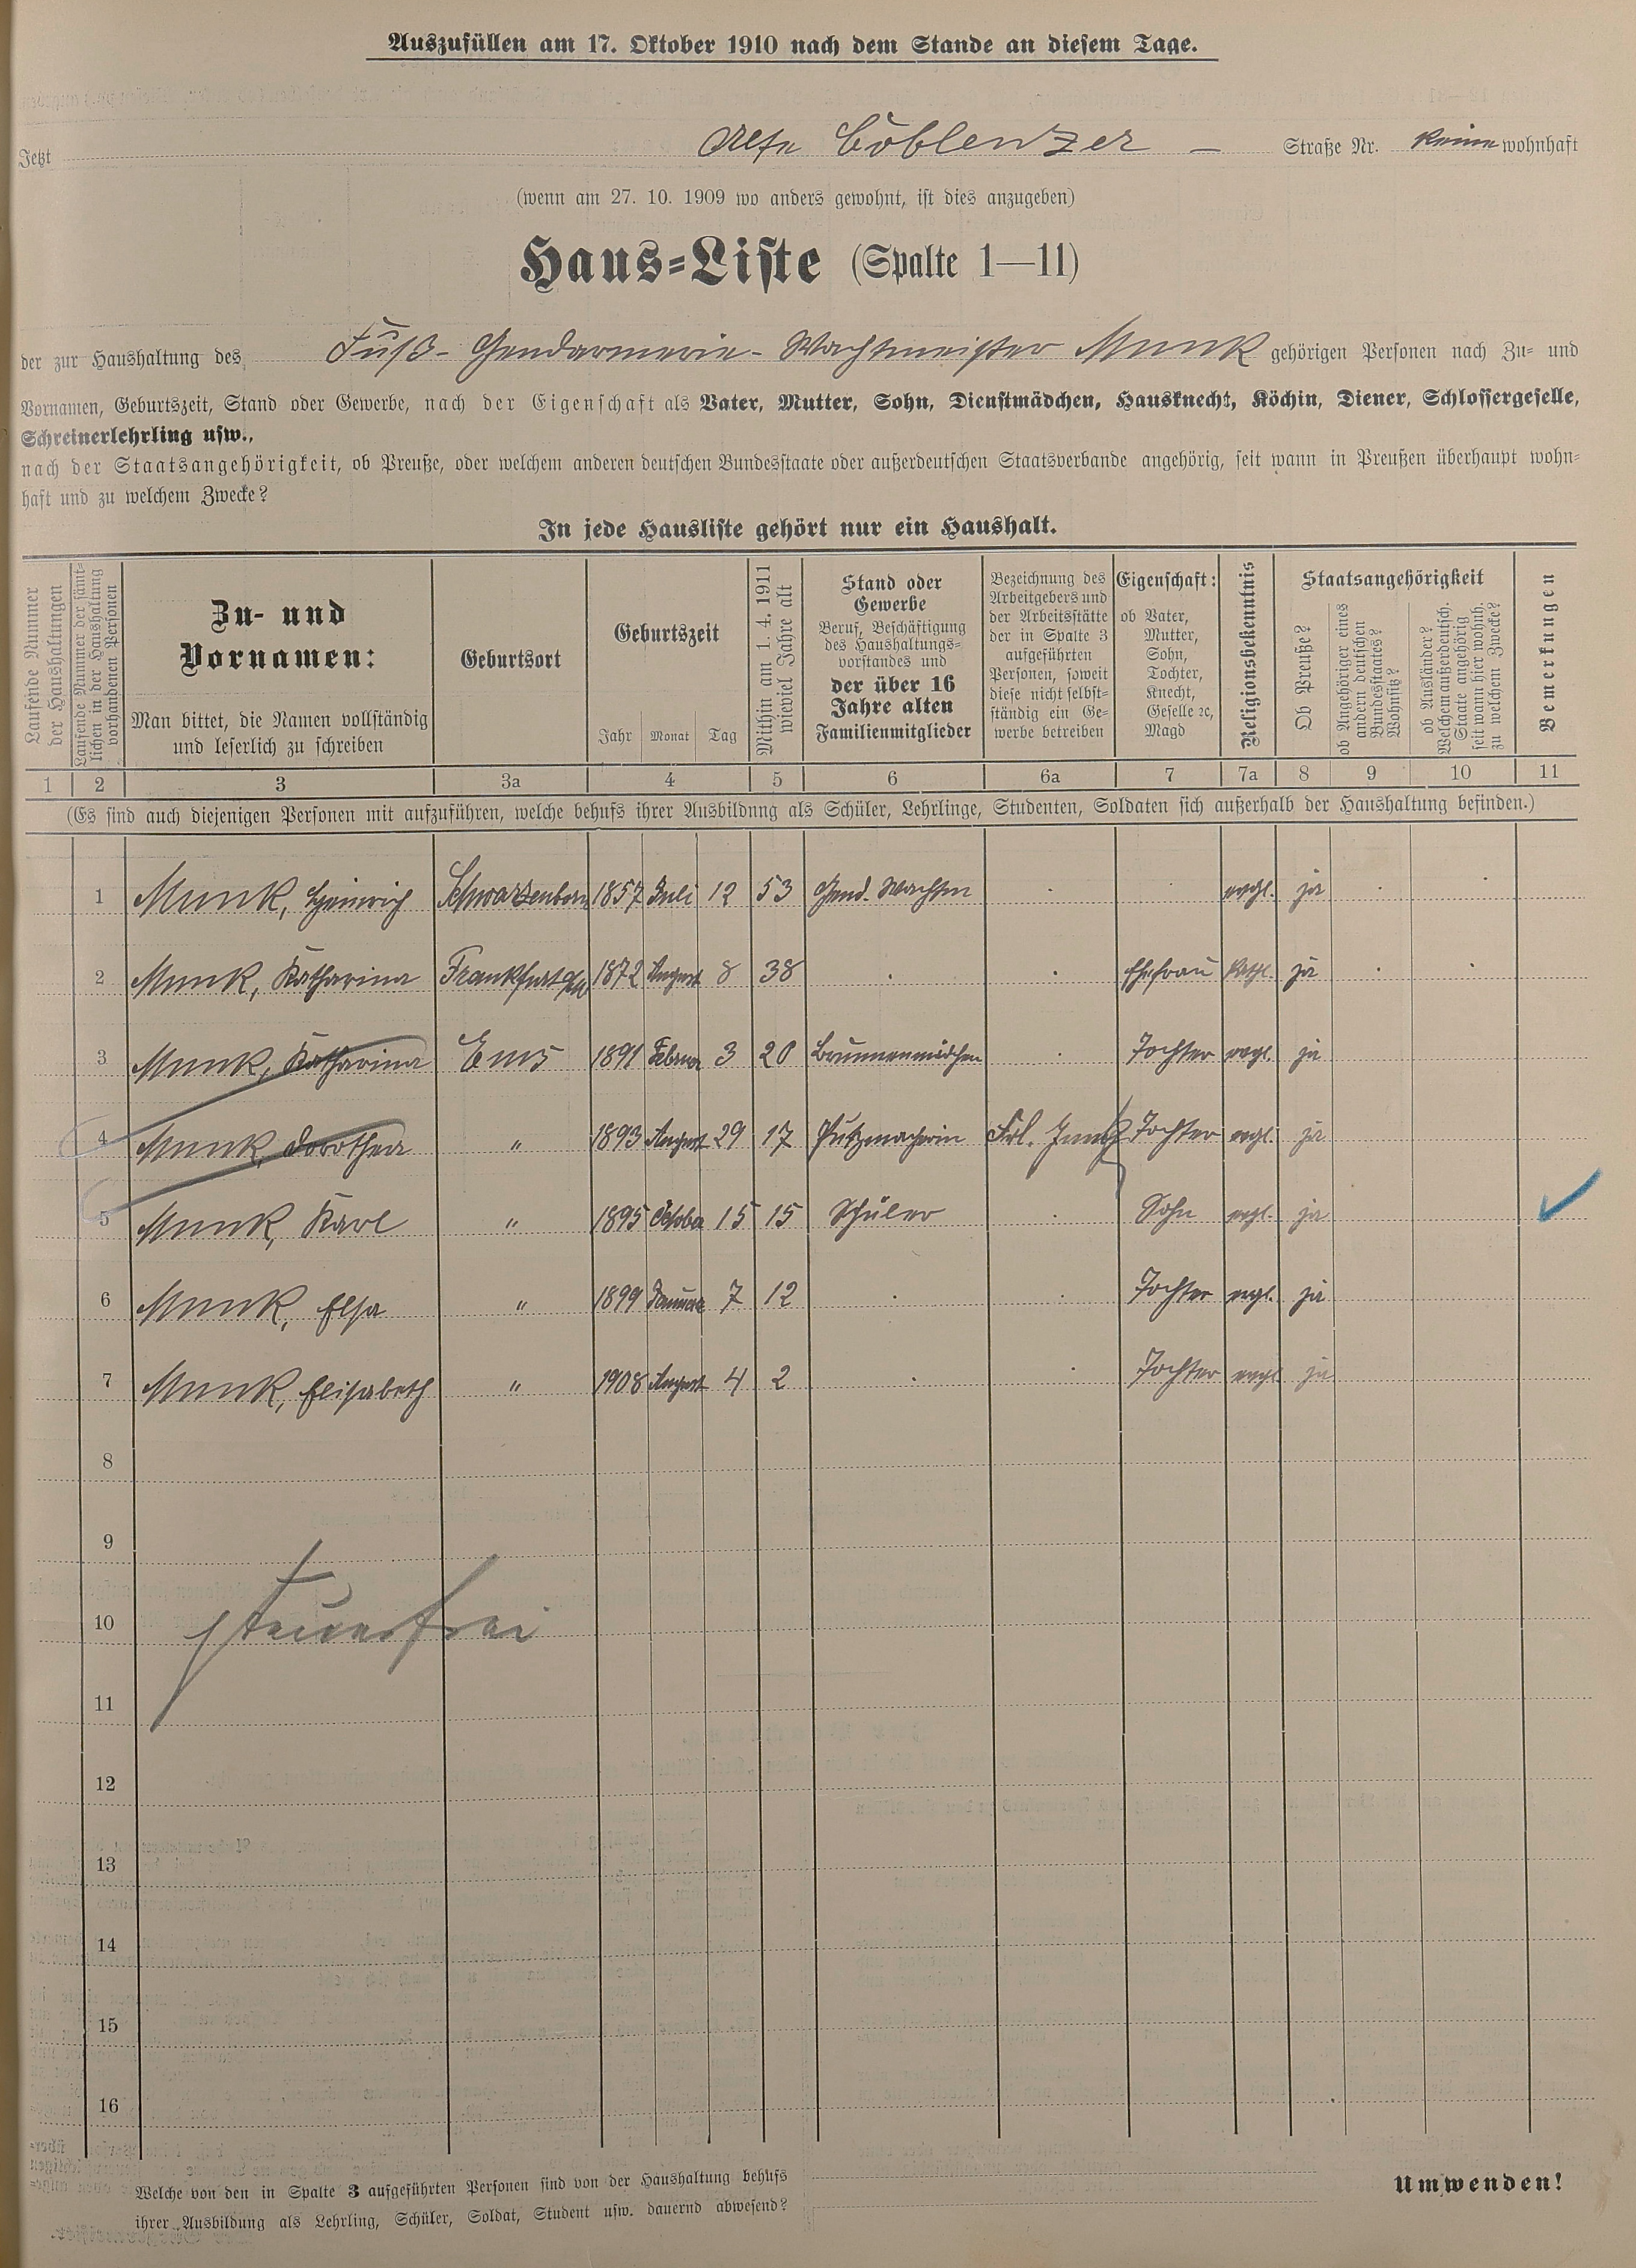 Auszufüllen am 17. Oktober 1910 nach dem Stande an diesem Tage.
Jetzt Alte Coblenzer - Straße Nr. keine wohnhaft
(wenn am 27. 10. 1909 wo anders gewohnt, ist dies anzugeben)
Haus-Liste (Spalte 1—11)
der zur Haushaltung des Fuß-Gendarmerie-Wachtmeister Munk gehörigen Personen nach Zu- und
Vornamen, Geburtszeit, Stand oder Gewerbe, nach der Eigenschaft als Vater, Mutter, Sohn, Dienstmädchen, Hausknecht, Köchin, Diener, Schlossergeselle,
Schreinerlehrling usw.,
nach der Staatsangehörigkeit, ob Preuße, oder welchem anderen deutschen Bundesstaate oder außerdeutschen Staatsverbande angehörig, seit wann in Preußen überhaupt wohn-
haft und zu welchem Zwecke?
In jede Hausliste gehört nur ein Haushalt.
Laufende Nummer
der Haushaltungen
Laufende Nummer der sämt-
lichen in der Haushaltung
vorhandenen Personen
Zu- und
Vornamen:
Man bittet, die Namen vollständig
und leserlich zu schreiben
Geburtsort
Geburtszeit
Jahr Monat Tag
Mithin am 1. 4. 1911
wieviel Jahre alt
Stand oder
Gewerbe
Beruf, Beschäftigung
des Haushaltungs-
vorstandes und
der über 16
Jahre alten
Familienmitglieder
Bezeichnung des
Arbeitgebers und
der Arbeitsstätte
der in Spalte 3
aufgeführten
Personen, soweit
diese nicht selbst-
ständig ein Ge-
werbe betreiben
Eigenschaft:
ob Vater,
Mutter,
Sohn,
Tochter,
Knecht,
Geselle ꝛc,
Magd
Religionsbekenntnis
Staatsangehörigkeit
Ob Preuße?
ob Angehöriger eines
andern deutschen
Bundesstaates?
Wohnsitz?
ob Ausländer?
Welchem außerdeutsch.
Staate angehörig
seit wann hier wohnh.
zu welchem Zwecke?
Bemerkungen
1 2 3 3a 4 5 6 6a 7 7a 8 9 10 11
(Es sind auch diejenigen Personen mit aufzuführen, welche behufs ihrer Ausbildung als Schüler, Lehrlinge, Studenten, Soldaten sich außerhalb der Haushaltung befinden.)
1 Munk, Heinrich Schwarzenborn 1857 Juli 12 53 Gend. Wachtm evgl. ja
2 Munk, Katharina Frankfurt a/M 1872 August 8 38 Ehefrau kathl. ja
3 Munk, Katharina Ems 1891 Februar 3 20 Brunnenmädchen Tochter evgl. ja
4 Munk, Dorothea " 1893 August 29 17 Putzmacherin Frl. Tochter evgl. ja
5 Munk, Karl " 1895 October 15 15 Schüler Sohn evgl. ja
6 Munk, Elsa " 1899 Januar 7 12 Tochter evgl. ja
7 Munk, Elisabeth " 1908 August 4 2 Tochter evgl. ja
8
9
10 steuerfrei
11
12
13
14
15
16
Welche von den in Spalte 3 aufgeführten Personen sind von der Haushaltung behufs
ihrer Ausbildung als Lehrling, Schüler, Soldat, Student usw. dauernd abwesend?
Umwenden!